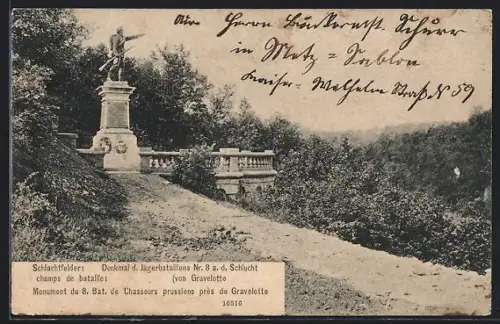 Herrn Bäckermstr. Schürr
in Metz = Sablon
Kaiser = Wilhelm Straß № 59
Schlachtfelder: Denkmal d. Jägerbataillons Nr. 8 a. d. Schlucht
champs de bataille: (von Gravelotte
Monument du 8. Bat. de Chasseurs prussiens près de Gravelotte
16516